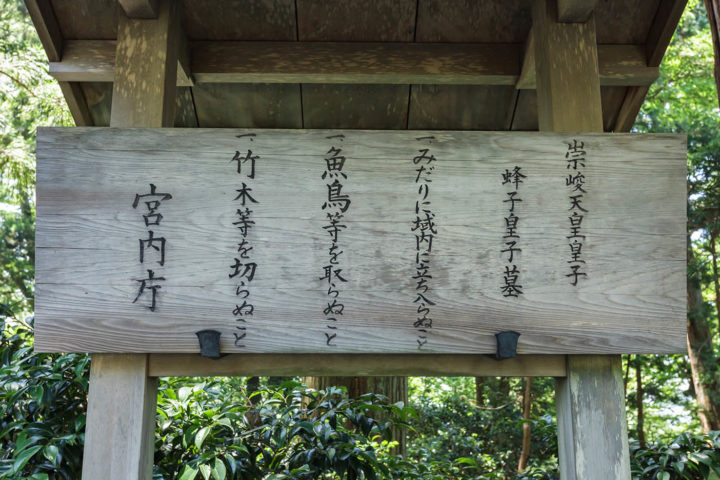 崇峻天皇皇子
蜂子皇子墓
一 みだりに域内に立ち入らぬこと
一 魚鳥等を取らぬこと
一 竹木等を切らぬこと
宮内庁